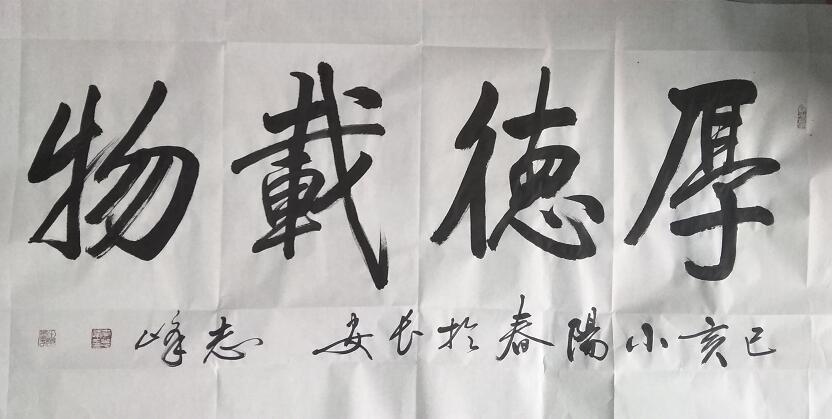 厚德載物
己亥小陽春於長安 志峰